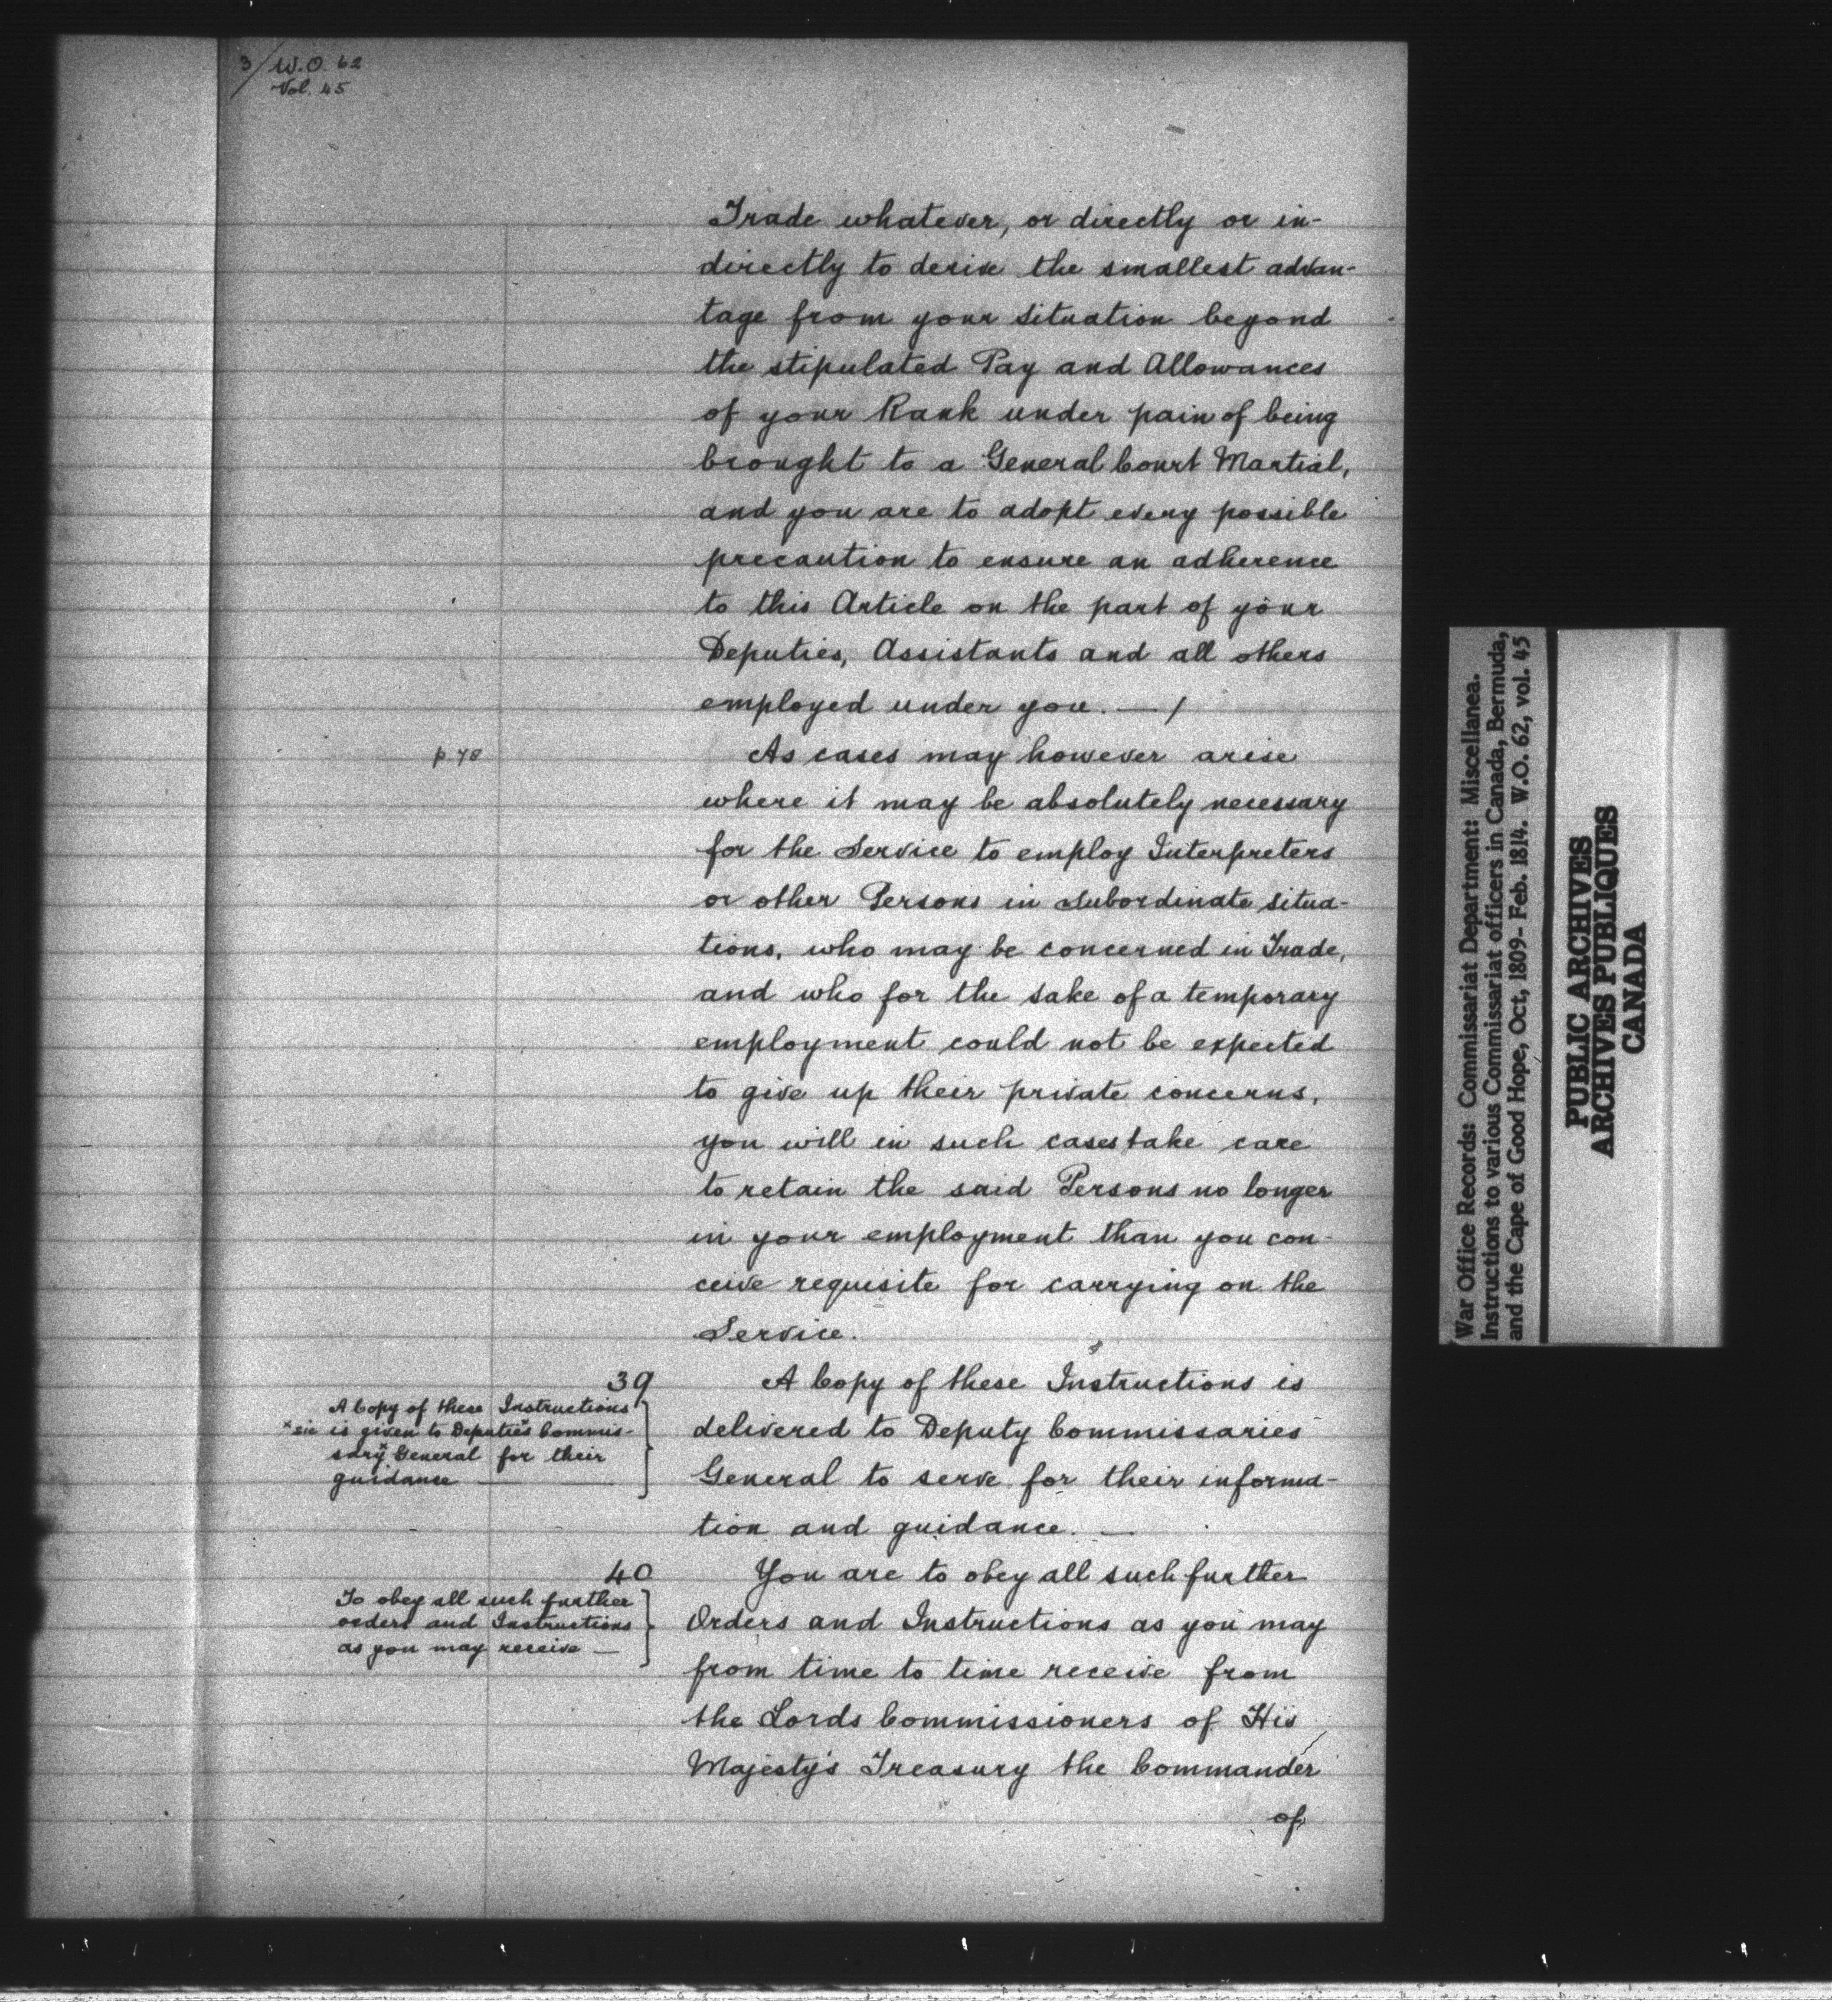 3/ W.O. 62
Vol. 45
Trade whatever, or directly or in-
directly to derive the smallest advan-
tage from your situation beyond
the stipulated Pay and Allowances
of your Rank under pain of being
brought to a General Court Martial,
and you are to adopt every possible
precaution to ensure an adherence
to this Article on the part of your
Deputies, Assistants and all others
employed under you. — /
p. 78
As cases may however arise
where it may be absolutely necessary
for the Service to employ Interpreters
or other Persons in subordinate situa-
tions, who may be concerned in Trade,
and who for the sake of a temporary
employment could not be expected
to give up their private concerns,
you will in such cases take care
to retain the said Persons no longer
in your employment than you con-
ceive requisite for carrying on the
Service.
39
A Copy of these Instructions
x sic is given to Deputies x Commis-
sary x General for their
guidance —
A Copy of these Instructions is
delivered to Deputy Commissaries
General to serve for their informa-
tion and guidance. —
40
To obey all such further
orders and Instructions
as you may receive —
You are to obey all such further
Orders and Instructions as you may
from time to time receive from
the Lords Commissioners of His
Majesty's Treasury the Commander
of
War Office Records: Commissariat Department: Miscellanea.
Instructions to various Commissariat officers in Canada, Bermuda,
and the Cape of Good Hope, Oct, 1809- Feb. 1814. W.O. 62, vol. 45
PUBLIC ARCHIVES
ARCHIVES PUBLIQUES
CANADA